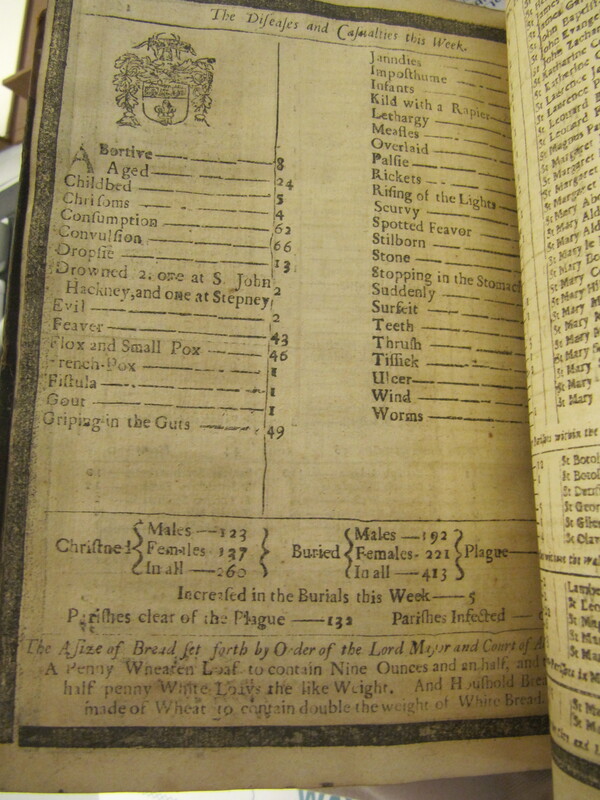 The Diſeaſes and Caſualties this Week.
Abortive 8
Aged 24
Childbed 5
Chriſoms 4
Conſumption 62
Convulſion 66
Dropſie 13
Drowned 2. one at S. John
Hackney, and one at Stepney 2
Evil 2
Feaver 43
Flox and Small Pox 46
French-Pox 1
Fiſtula 1
Gout 1
Griping in the Guts 49
Jaundies
Impoſthume
Infants
Kild with a Rapier
Lethargy
Meaſles
Overlaid
Palſie
Rickets
Riſing of the Lights
Scurvy
Spotted Feavor
Stilborn
Stone
Stopping in the Stomac
Suddenly
Surfeit
Teeth
Thruſh
Tiſſick
Ulcer
Wind
Worms
Chriſtned
Males 123
Females 137
In all 260
Buried
Males 192
Females 221
In all 413
Plague
Increaſed in the Burials this Week 5
Pariſhes clear of the Plague 132 Pariſhes Infected
The Aſsize of Bread ſet forth by Order of the Lord Major and Court of
A Penny Wheaten Loaf to contain Nine Ounces and an half, and
half penny White Loavs the like Weight. And Houſhold Brea
made of Wheat to contain double the weight of White Bread.
St Katharine
St Katherine
St Laurence
St Laurence
St Leonard
St Leonard
St Magnus
St Margaret
St Margaret
St Margaret
St Margaret
St Mary
St Mary Ald
St Mary Ald
St Mary
St Mary
St Mary
St Mary
St Mary
St Mary
St Mary
St Mary
St Mary
St Mary
St Botol
St Botol
St Dunſt
St Geor
St Giles
St Olav
Lambe